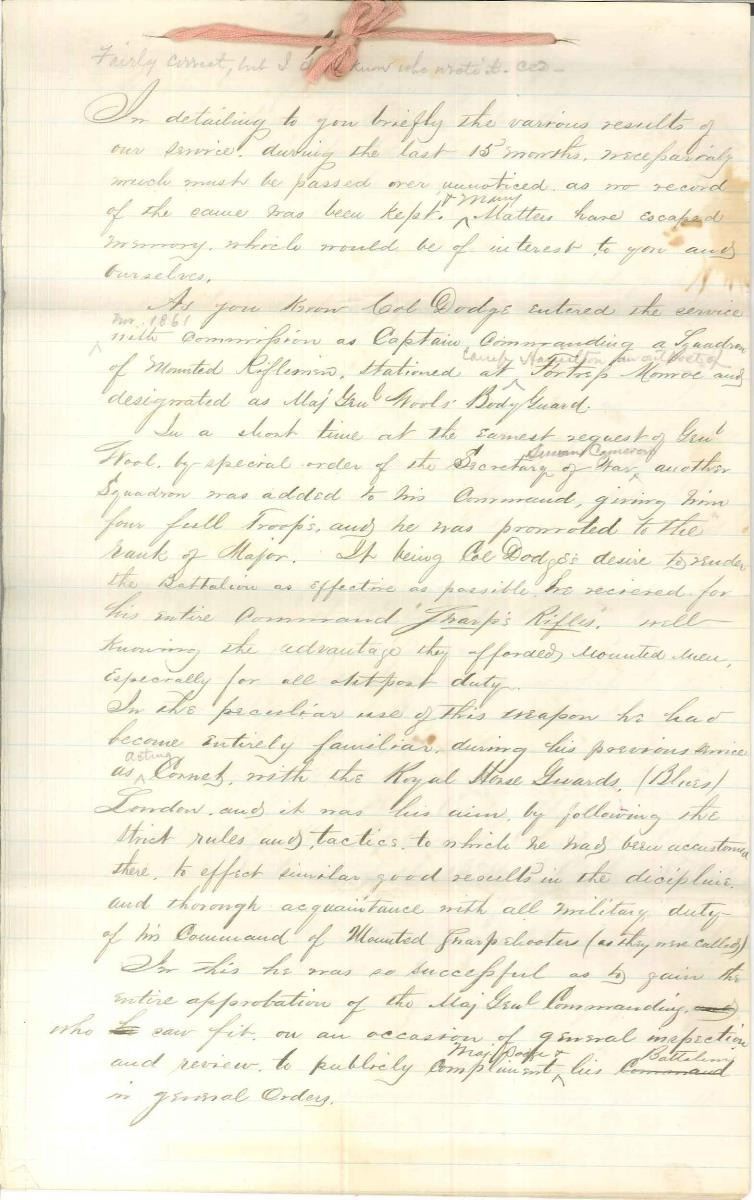 Fairly correct, but I know who wrote it. CCD -
In detailing to you briefly the various results of
our service. during the last 15 months. necessarily
much must be passed over unnoticed as no record
of the same has been kept. & Many Matters have escaped
memory. which would be of interest to you and
ourselves.
As you know Col Dodge entered the service
Nov. 1861
with commission as Captain Commanding a Squadron
Camp Hamilton an outpost of
of Mounted Riflemen. stationed at Fortress Monroe and
designated as Maj Genl Wools' Body Guard.
In a short time at the earnest request of Genl
Simon Cameron
Wool. by special order of the Secretary of War, another
Squadron was added to his Command, giving him
four full Troops, and he was promoted to the
rank of Major. It being Col Dodge's desire to render
the Battalion as effective as possible, he recieved for
his entire command "Sharp's Rifles". well
knowing the advantage they afforded Mounted Men,
Especially for all outpost duty.
In the peculiar use of this weapon he had
become entirely familiar. during his previous service
acting
as Cornet, with the Royal Horse Guards, (Blues)
London. and it was his aim, by following the
strict rules and tactics. to which he had been accustomed
there. to effect similar good results in the dicipline.
and thorough acquaintance with all military duty-
of his Command of Mounted Sharpshooters (as they were called)
In this he was so successful as to gain the
entire approbation of the Maj Genl Commanding. and
who he saw fit. on an occasion of general inspection
Maj Dodge & Battalion
and review. to publicly compliment his Command
in general Orders.